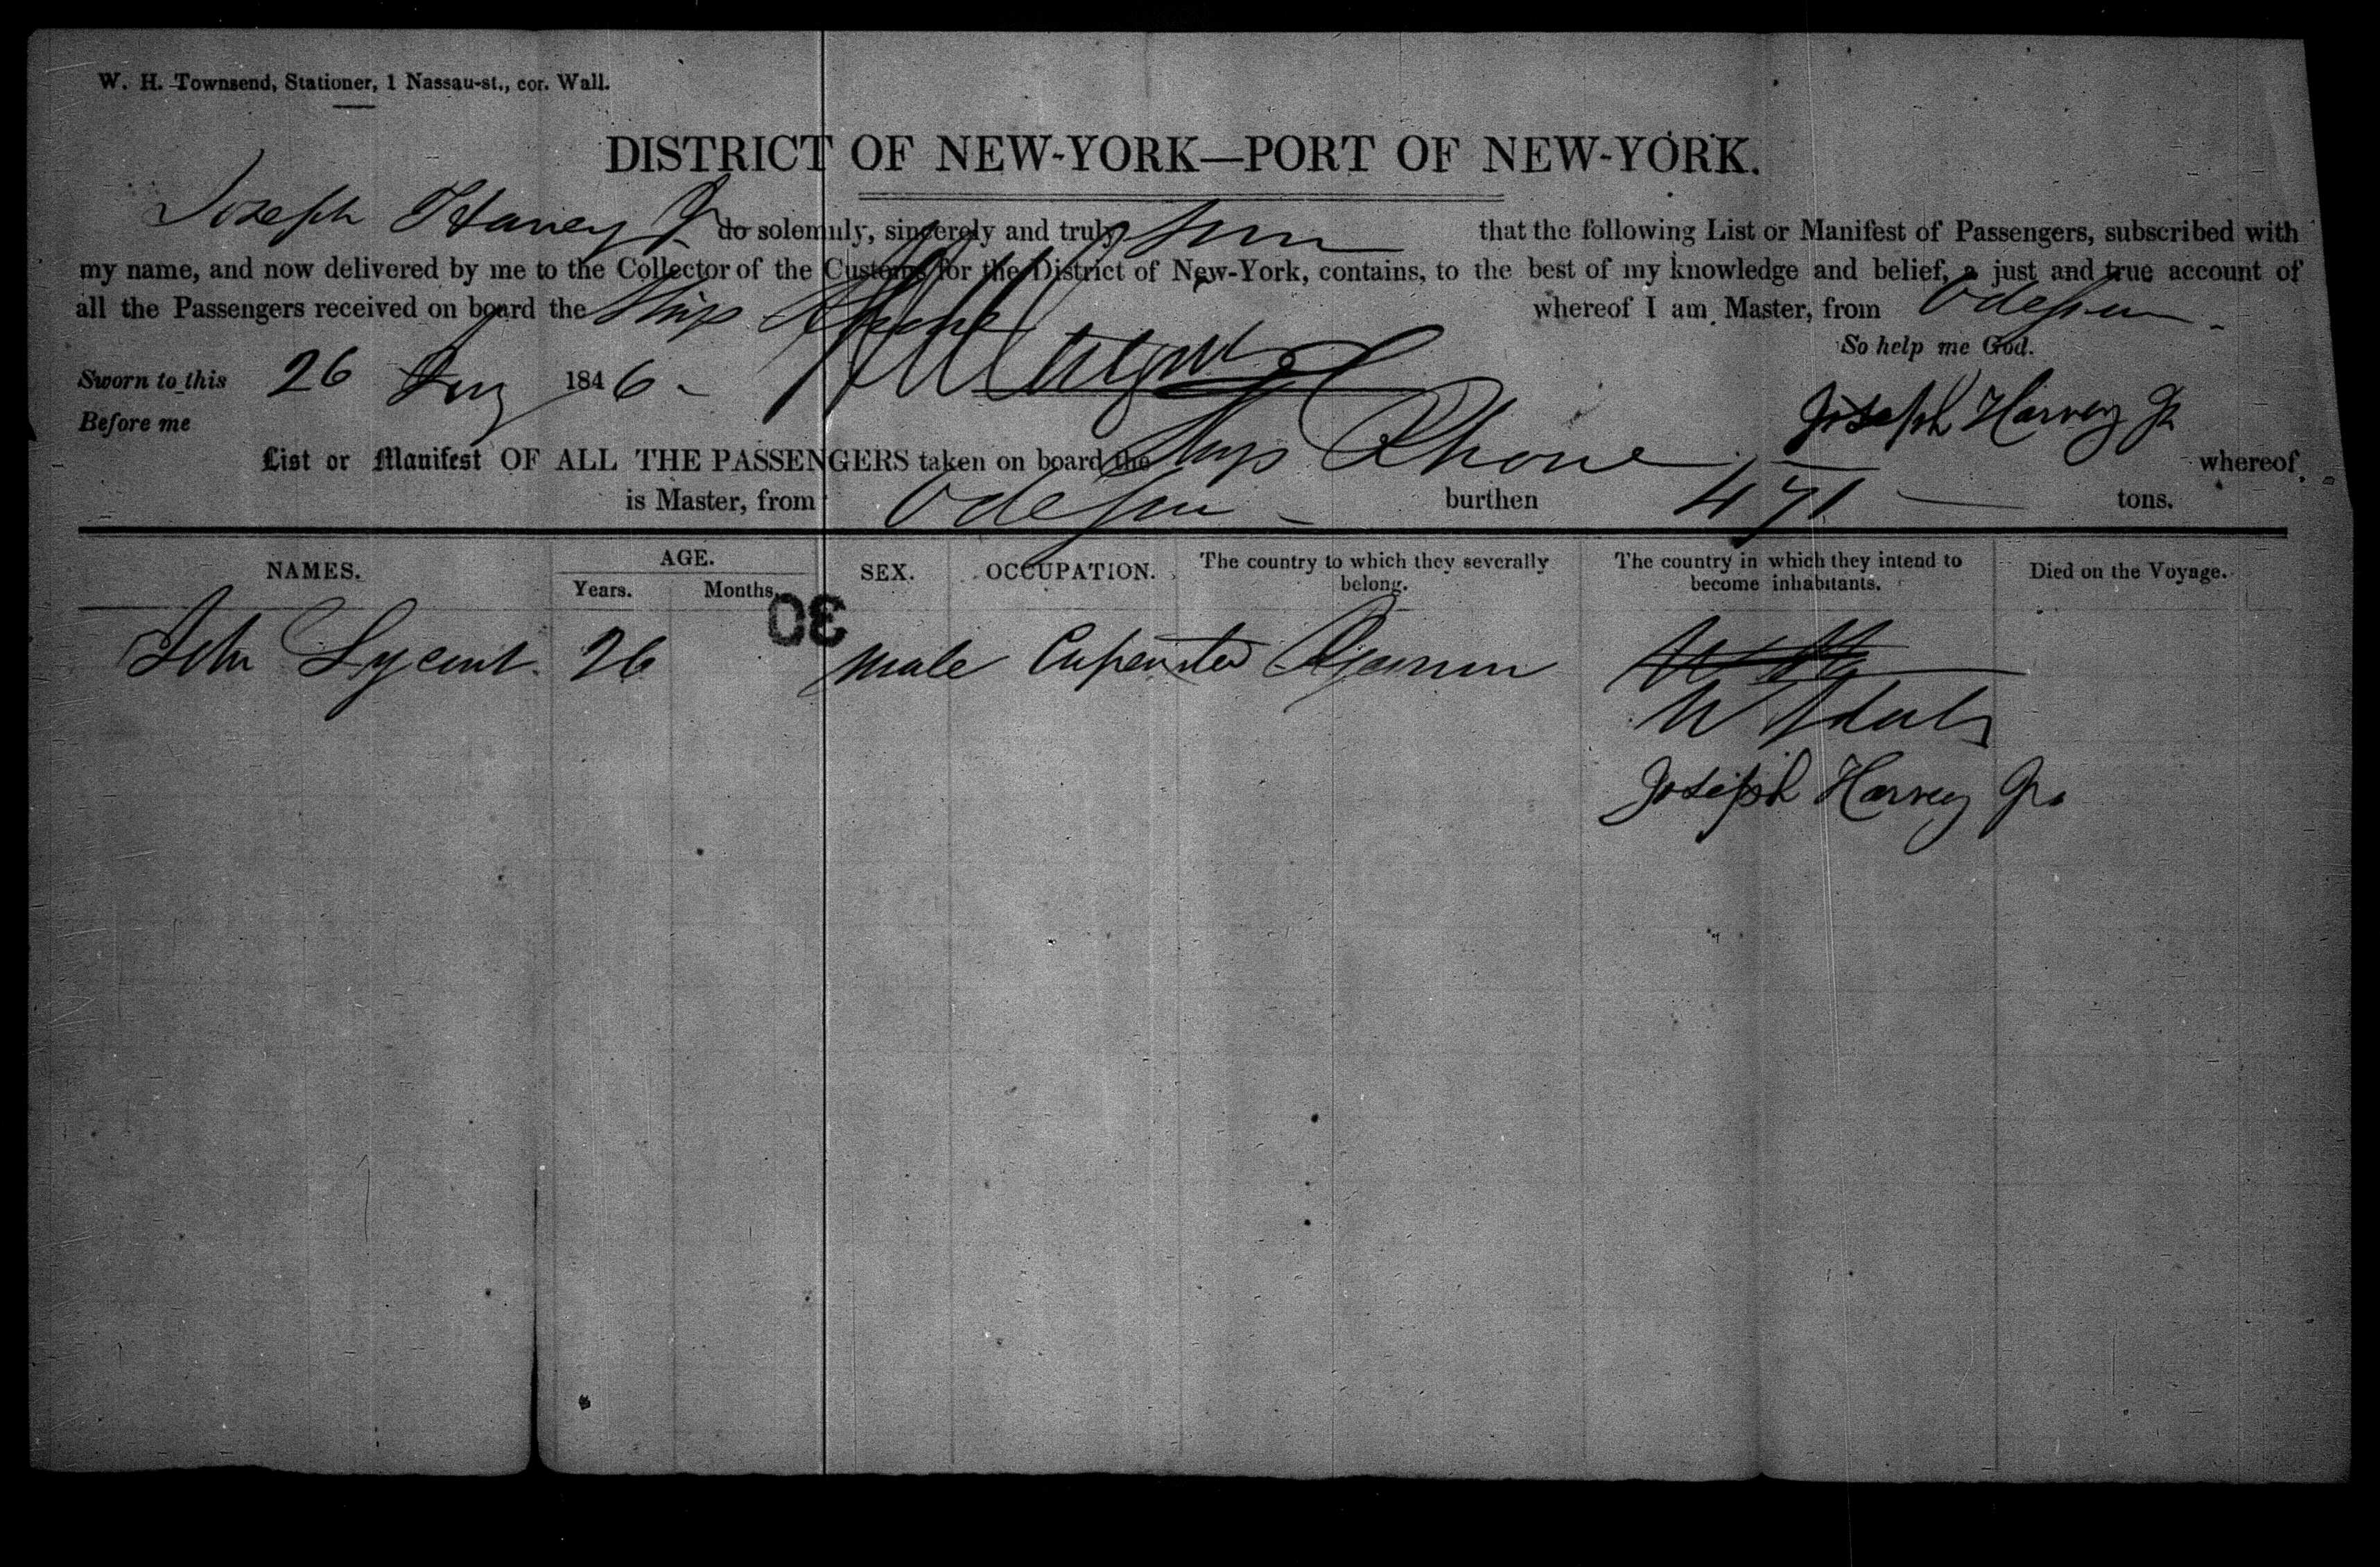 W. H. Townsend, Stationer, 1 Nassau-st., cor. Wall.
DISTRICT OF NEW-YORK—PORT OF NEW-YORK.
Joseph Harvey Jr do solemnly, sincerely and truly that the following List or Manifest of Passengers, subscribed with
my name, and now delivered by me to the Collector of the Customs for the District of New-York, contains, to the best of my knowledge and belief, a just and true account of
all the Passengers received on board the Ship Rhone whereof I am Master, from Odessa
So help me God.
Sworn to this 26 1846
Joseph Harvey Jr
Before me
List or Manifest OF ALL THE PASSENGERS taken on board the Ship Rhone whereof
is Master, from Odessa burthen 471 tons.
NAMES. AGE. SEX. OCCUPATION. The country to which they severally belong. The country in which they intend to become inhabitants. Died on the Voyage.
Years. Months.
30
John 26 male Carpenter
U States
Joseph Harvey Jr